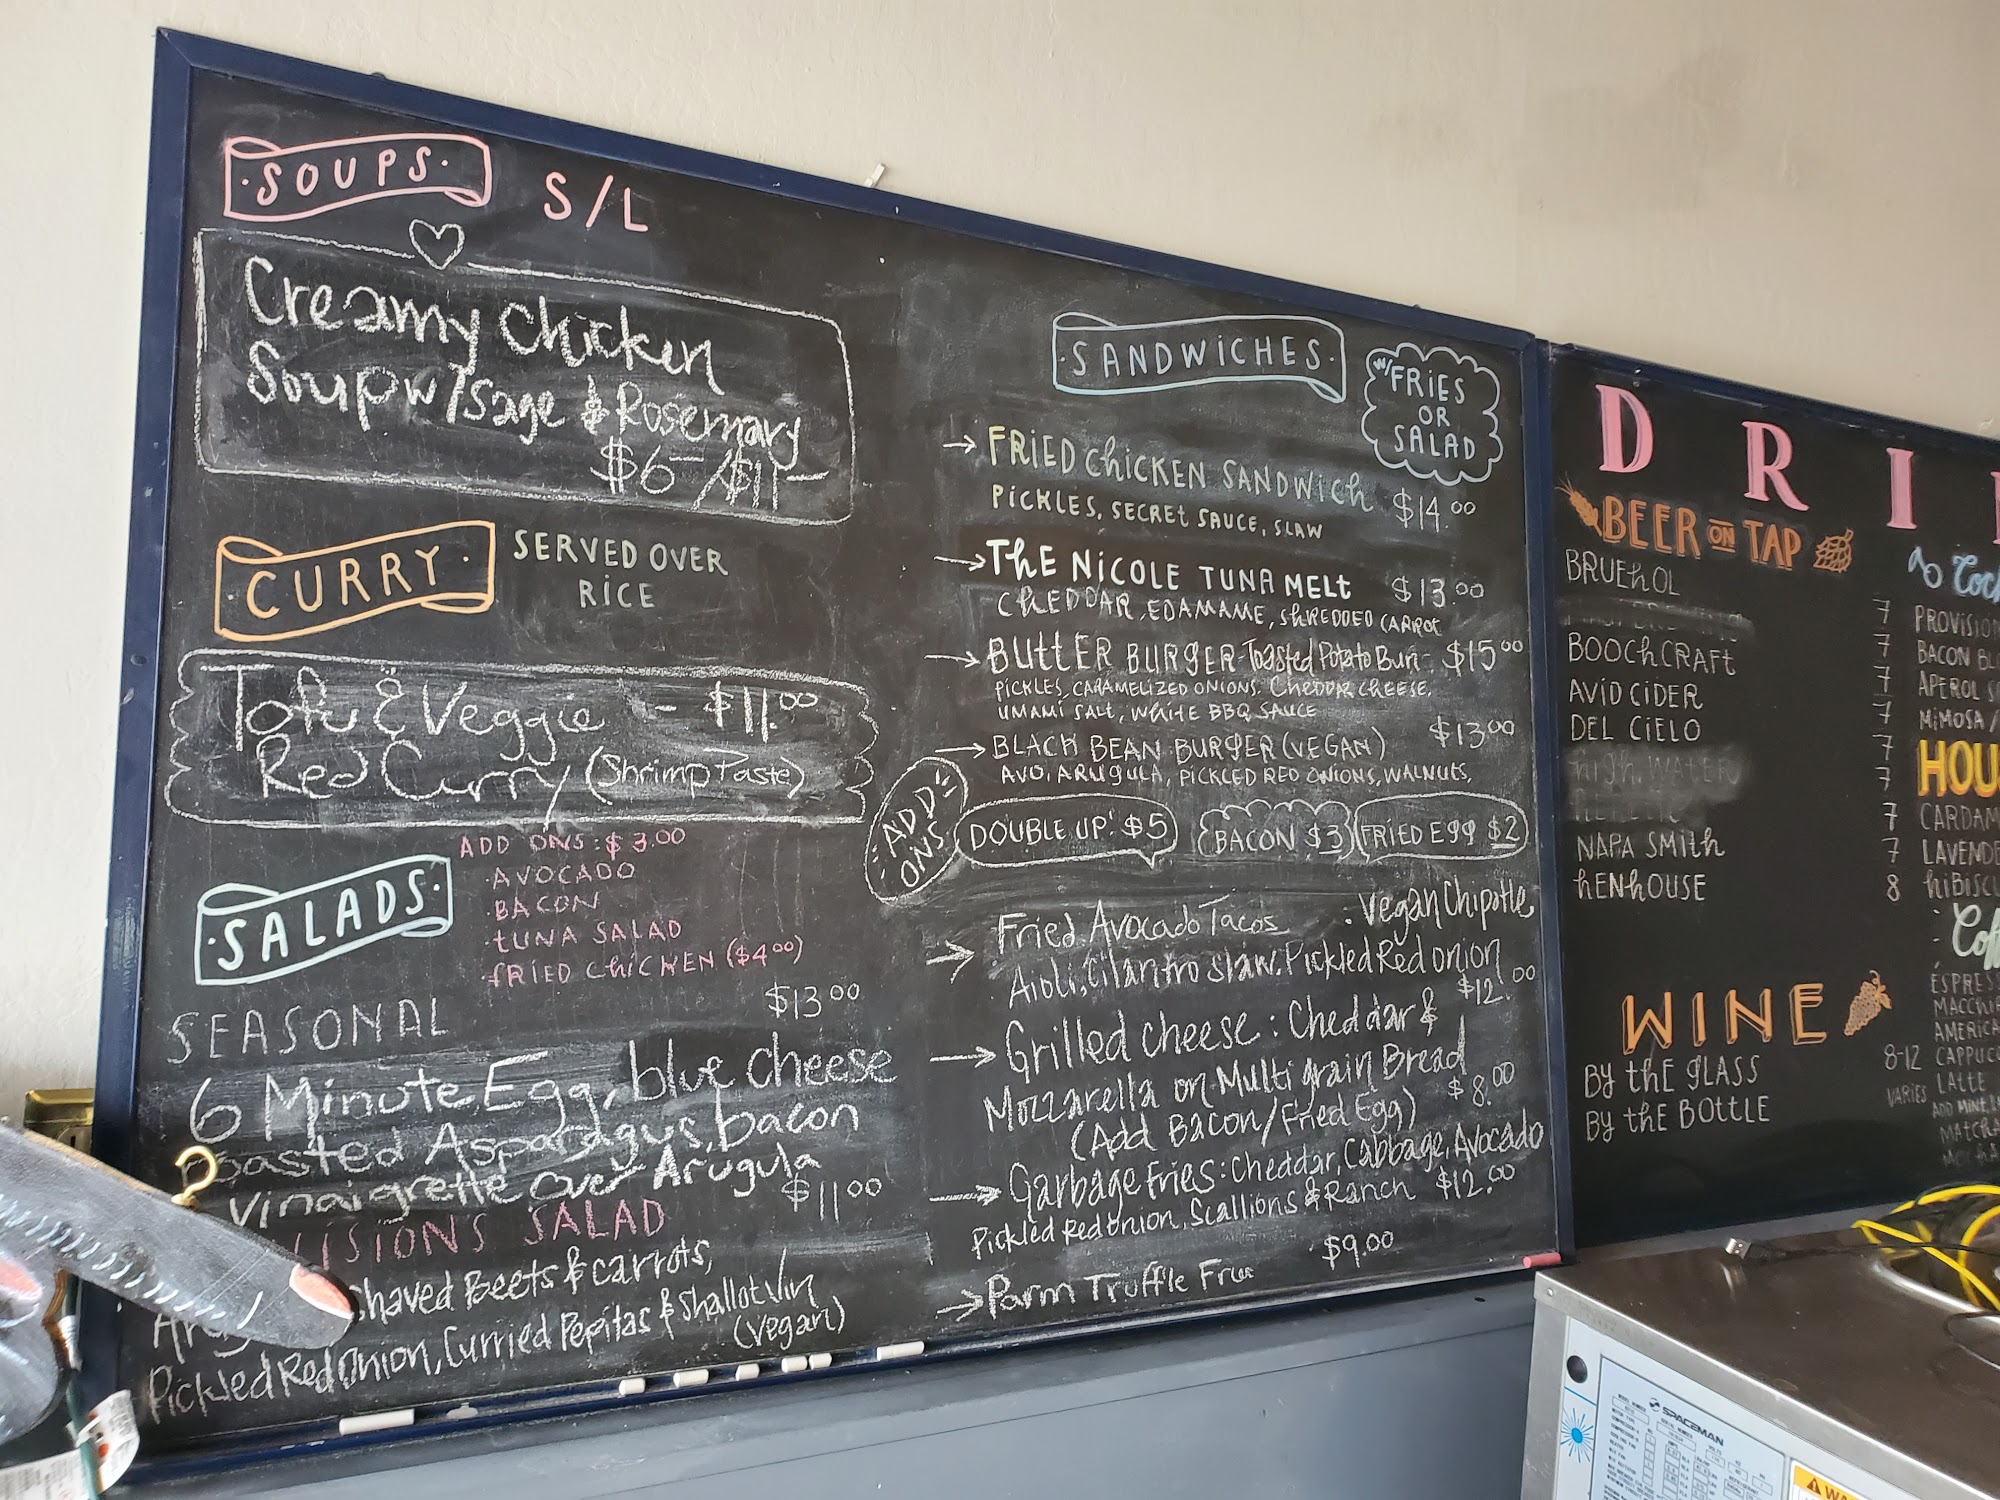 SOUPS
S/L
Creamy Chicken
Soup w/Sage & Rosemary
$6- /$11-
CURRY
SERVED OVER
RICE
Tofu & Veggie - $11.00
Red Curry (Shrimp Paste)
SALADS
ADD ONS: $3.00
·AVOCADO
·BACON
·TUNA SALAD
·FRIED CHICKEN ($4.00)
SEASONAL $13.00
6 Minute Egg, blue cheese
roasted Asparagus, bacon
vinaigrette over Arugula
ISIONS SALAD $11.00
shaved Beets & carrots,
Pickled Red Onion, Curried Pepitas & Shallot Vin
(Vegan)
SANDWICHES
W/ FRIES
OR
SALAD
→ FRIED CHICKEN SANDWICH $14.00
PICKLES, SECRET SAUCE, SLAW
→ THE NICOLE TUNA MELT $13.00
CHEDDAR, EDAMAME, SHREDDED CARROT
→ BUTTER BURGER-Toasted Potato Bun- $15.00
PICKLES, CARAMELIZED ONIONS, CHEDDAR CHEESE,
UMAMI SALT, WHITE BBQ SAUCE
→ BLACK BEAN BURGER (VEGAN) $13.00
AVO, ARUGULA, PICKLED RED ONIONS, WALNUTS,
ADD
ONS
DOUBLE UP! $5
BACON $3
FRIED EGG $2
→ Fried Avocado Tacos . Vegan Chipotle
Aioli, Cilantro slaw, Pickled Red onion
$12.00
→ Grilled cheese: Cheddar &
Mozzarella on Multigrain Bread
(Add Bacon/Fried Egg) $8.00
→ Garbage Fries: Cheddar, Cabbage, Avocado
Pickled Red Onion, Scallions & Ranch $12.00
→ Parm Truffle Fries $9.00
D R I
BEER ON TAP
BRUEHOL 7
7
BOOCHCRAFT 7
AVID CIDER 7
DEL CIELO 7
HIGH WATER 7
7
NAPA SMITH 7
HENHOUSE 8
WINE
BY THE GLASS 8-12
BY THE BOTTLE VARIES
PROVISION
BACON BL
APEROL S
MIMOSA /
HOU
CARDAM
LAVENDE
HIBISCU
ESPRESS
MACCHI
AMERICA
CAPPUCC
LATTE
MATCHA
SPACEMAN
WA